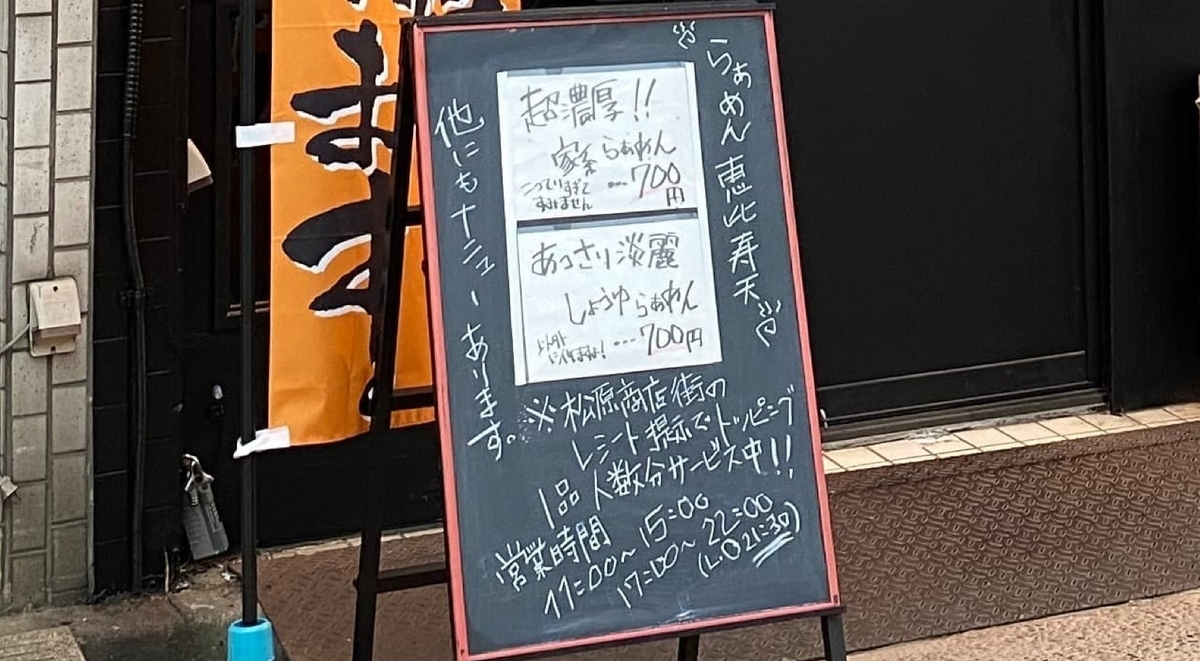 らぁめん 恵比寿天
超濃厚!!
家系らぁめん
こってりすぎて
すみません
…700
円
あっさり淡麗
しょうゆらぁめん
…700円
他にもナニューあります。
※松原商店街の
レシート掲示でトッピング
1品 人数分サービス中!!
営業時間
11:00~15:00
17:00~22:00
(L.O21:30)
ます